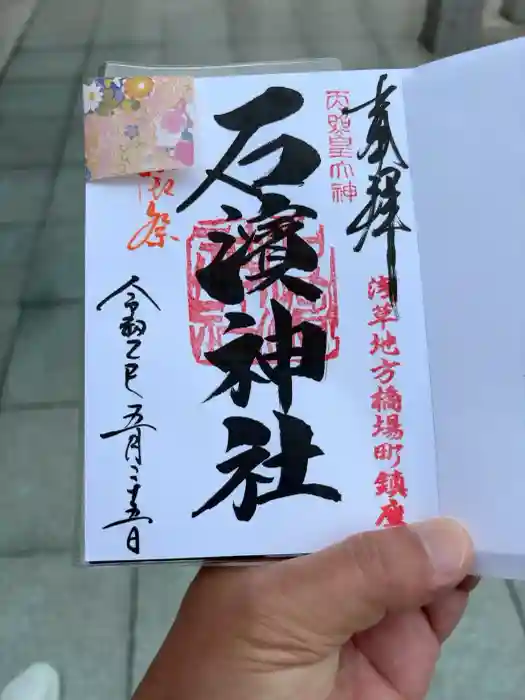 奉拝
天照皇大神
浅草地方橋場町鎮座
石濱神社
祭
令和乙巳五月二十五日